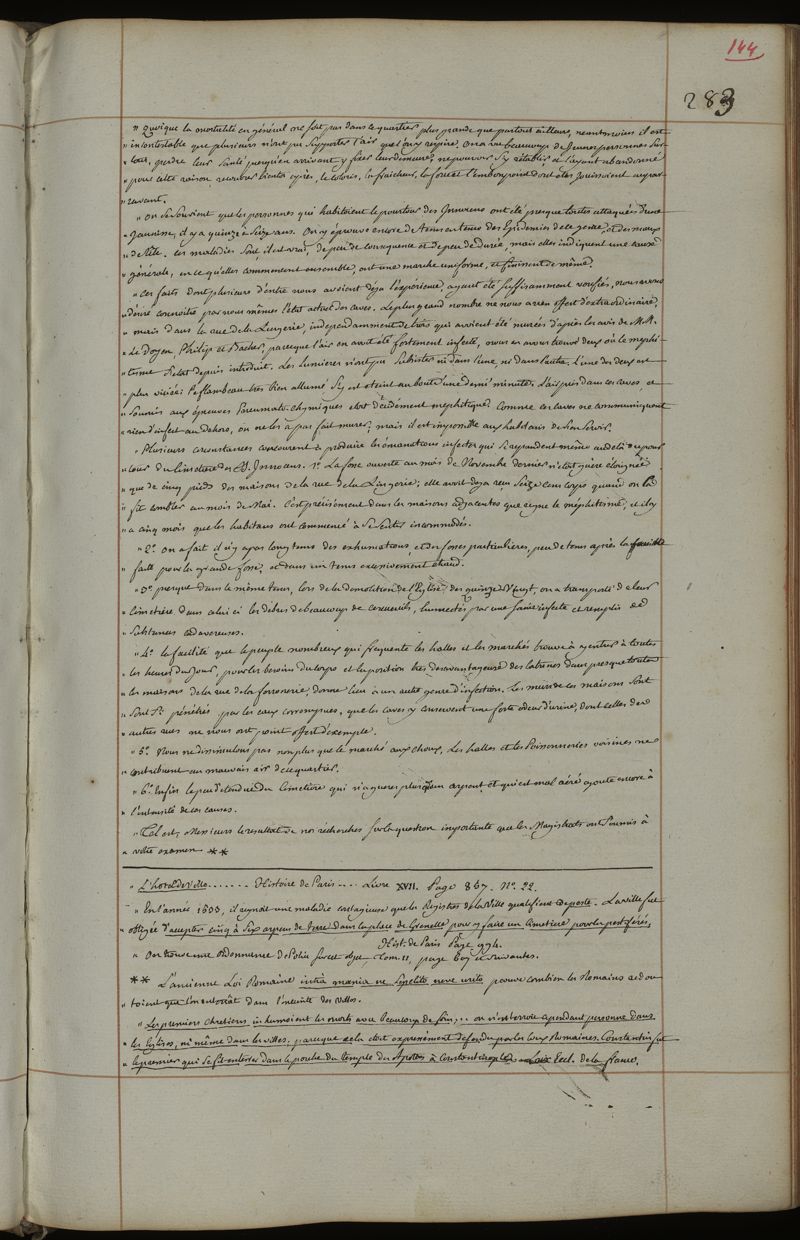 144
283
" Quoique la mortalité en général ne soit pas dans ce quartier plus grande que partout ailleurs, neantmoins il est
" incontestable que plusieurs n'ont pu supporter l'air que l'on y respire, on a vu beaucoup de Jeunes personnes sur
" tout, perdre leur santé peu après en arrivant y fixer leur demeure, ne pouvoir s'y rétablir, et l'ayant abandonné
" pour cette raison recouvrer bientôt après, le coloris, la fraicheur, la force et l'embonpoint dont elles jouissoient aupar-
" ravant.
" On se souvient que les personnes qui habitoient le pourtour des Innocens ont été presque toutes attaquées d'une
" Jaunisse, il y a quinze à seize ans. On y éprouve encore de tems en tems des Epidemies de ce genre, et des maux
" de tête. Ces maladies sont, il est vrai, de peu de consequence et de peu de durée, mais elles indiquent une cause
" générale, en ce qu'elles commencent ensemble, ont une marche uniforme, et finissent de même.
" Ces faits dont plusieurs d'entre nous avoient déja l'expérience, ayant été suffisamment vérifiés, nous avons
" désiré connoitre par nous mêmes l'état actuel des caves. Le plus grand nombre ne nous a rien offert d'extraordinaire,
" mais dans la rue de la Lingerie, independamment de trois qui avoient été murées d'après les avis de M.M.
" Le Doyen, Philip et Bacher, parceque l'air en avoit été fortement infecté, nous en avons trouvé deux où le mephi-
" tisme s'étoit depuis introduit. Les lumieres n'ont pu subsister ni dans l'une, ni dans l'autre. L'une des deux est
" plus viciée: le flambeau très bien allumé s'y est éteint au bout d'une demi minute: L'air pris dans ces caves, et
" soumis aux épreuves Pneumato-chymiques étoit décidément mephitique. Comme ces caves ne communiquent
" rien d'infect au dehors, on ne les a pas fait murer; mais il est impossible aux habitans de s'en servir.
" Plusieurs circonstances concourent à produire les émanations infectes qui se repandent même au delà du pour
" tour du Cimetiere des SS. Innocens. 1° La fosse ouverte au mois de Novembre dernier n'étoit guère éloignée
" que de cinq pieds des maisons de la rue de la Lingerie; elle avoit deja reçu seize cens corps quand on l'a
" fit combler au mois de Mai. C'est précisément dans les maisons adjacentes que regne le méphitisme, et il y
" a cinq mois que les habitans ont commencé à se sentir incommodés.
" 2° On a fait il n'y a pas longtems des exhumations, et des fosses particulières, peu de tems après la fouille
" faite pour la grande fosse, et dans un tems excessivement chaud.
" 3° presque dans le même tems, lors de la demolition de l'Eglise des quinze-Vingt, on a transporté de leur
" cimetière dans celui ci les débris de beaucoup de cercueils, humectés par une sanie infecte et remplis de
" substances cadavereuses.
" 4° la facilité que le peuple nombreux qui fréquente les halles et les marchés trouve à y entrer à toutes
" les heures du Jour, pour les besoins du corps et la position très desavantageuse des latrines dans presque toutes
" les maisons de la rue de la ferronerie, donne lieu à un autre genre d'infection. Les murs de ces maisons sont
" sont si pénétrés par les eaux corrompues, que les caves y conservent une forte odeur d'urine, dont celles des
" autres rues ne nous ont point offert d'exemple.
" 5° Nous ne dissimulons pas non plus que le marché aux choux, les halles et les Poissonneries voisines ne
" contribuent au mauvais air de ce quartier.
" 6° Enfin le peu d'étendue du Cimetière qui n'a guères plus d'un arpent, et qui est mal aéré ajoute encore à
" l'intensité de ces causes.
" Tel est, Messieurs le resultat de nos recherches sur la question importante que les Magistrats ont soumis à
" votre examen **
" L'hotel de Ville....... Histoire de Paris.... Livre XVII. Page 867. N° 22.
" En l'année 1580, il regnoit une maladie contagieuse que les Registres de la Ville qualifient de peste. La ville fut
" obligée d'accepter cinq à six arpens de terre dans la place de Grenelle pour y faire un Cimetière pour les pestiférés,
Hist. de Paris Page 994.
" On trouve une ordonnance de Police sur cet objet Tom. 11, page 607 et suivantes.
** L'ancienne Loi Romaine intrà mænia ne sepelito, neve urito prouve combien les Romains redou
" toient que l'on enterrât dans l'enceinte des villes.
" Les premiers chretiens inhumoient les morts avec beaucoup de soin;.. on n'enterroit cependant personne dans
" les Eglises, ni même dans les villes, parceque cela étoit expressément défendu par les Loix Romaines. Constantin fut
" le premier qui se fit enterrer dans le porche du temple des Apotres à Constantinople. Loix Eccl. de la france.